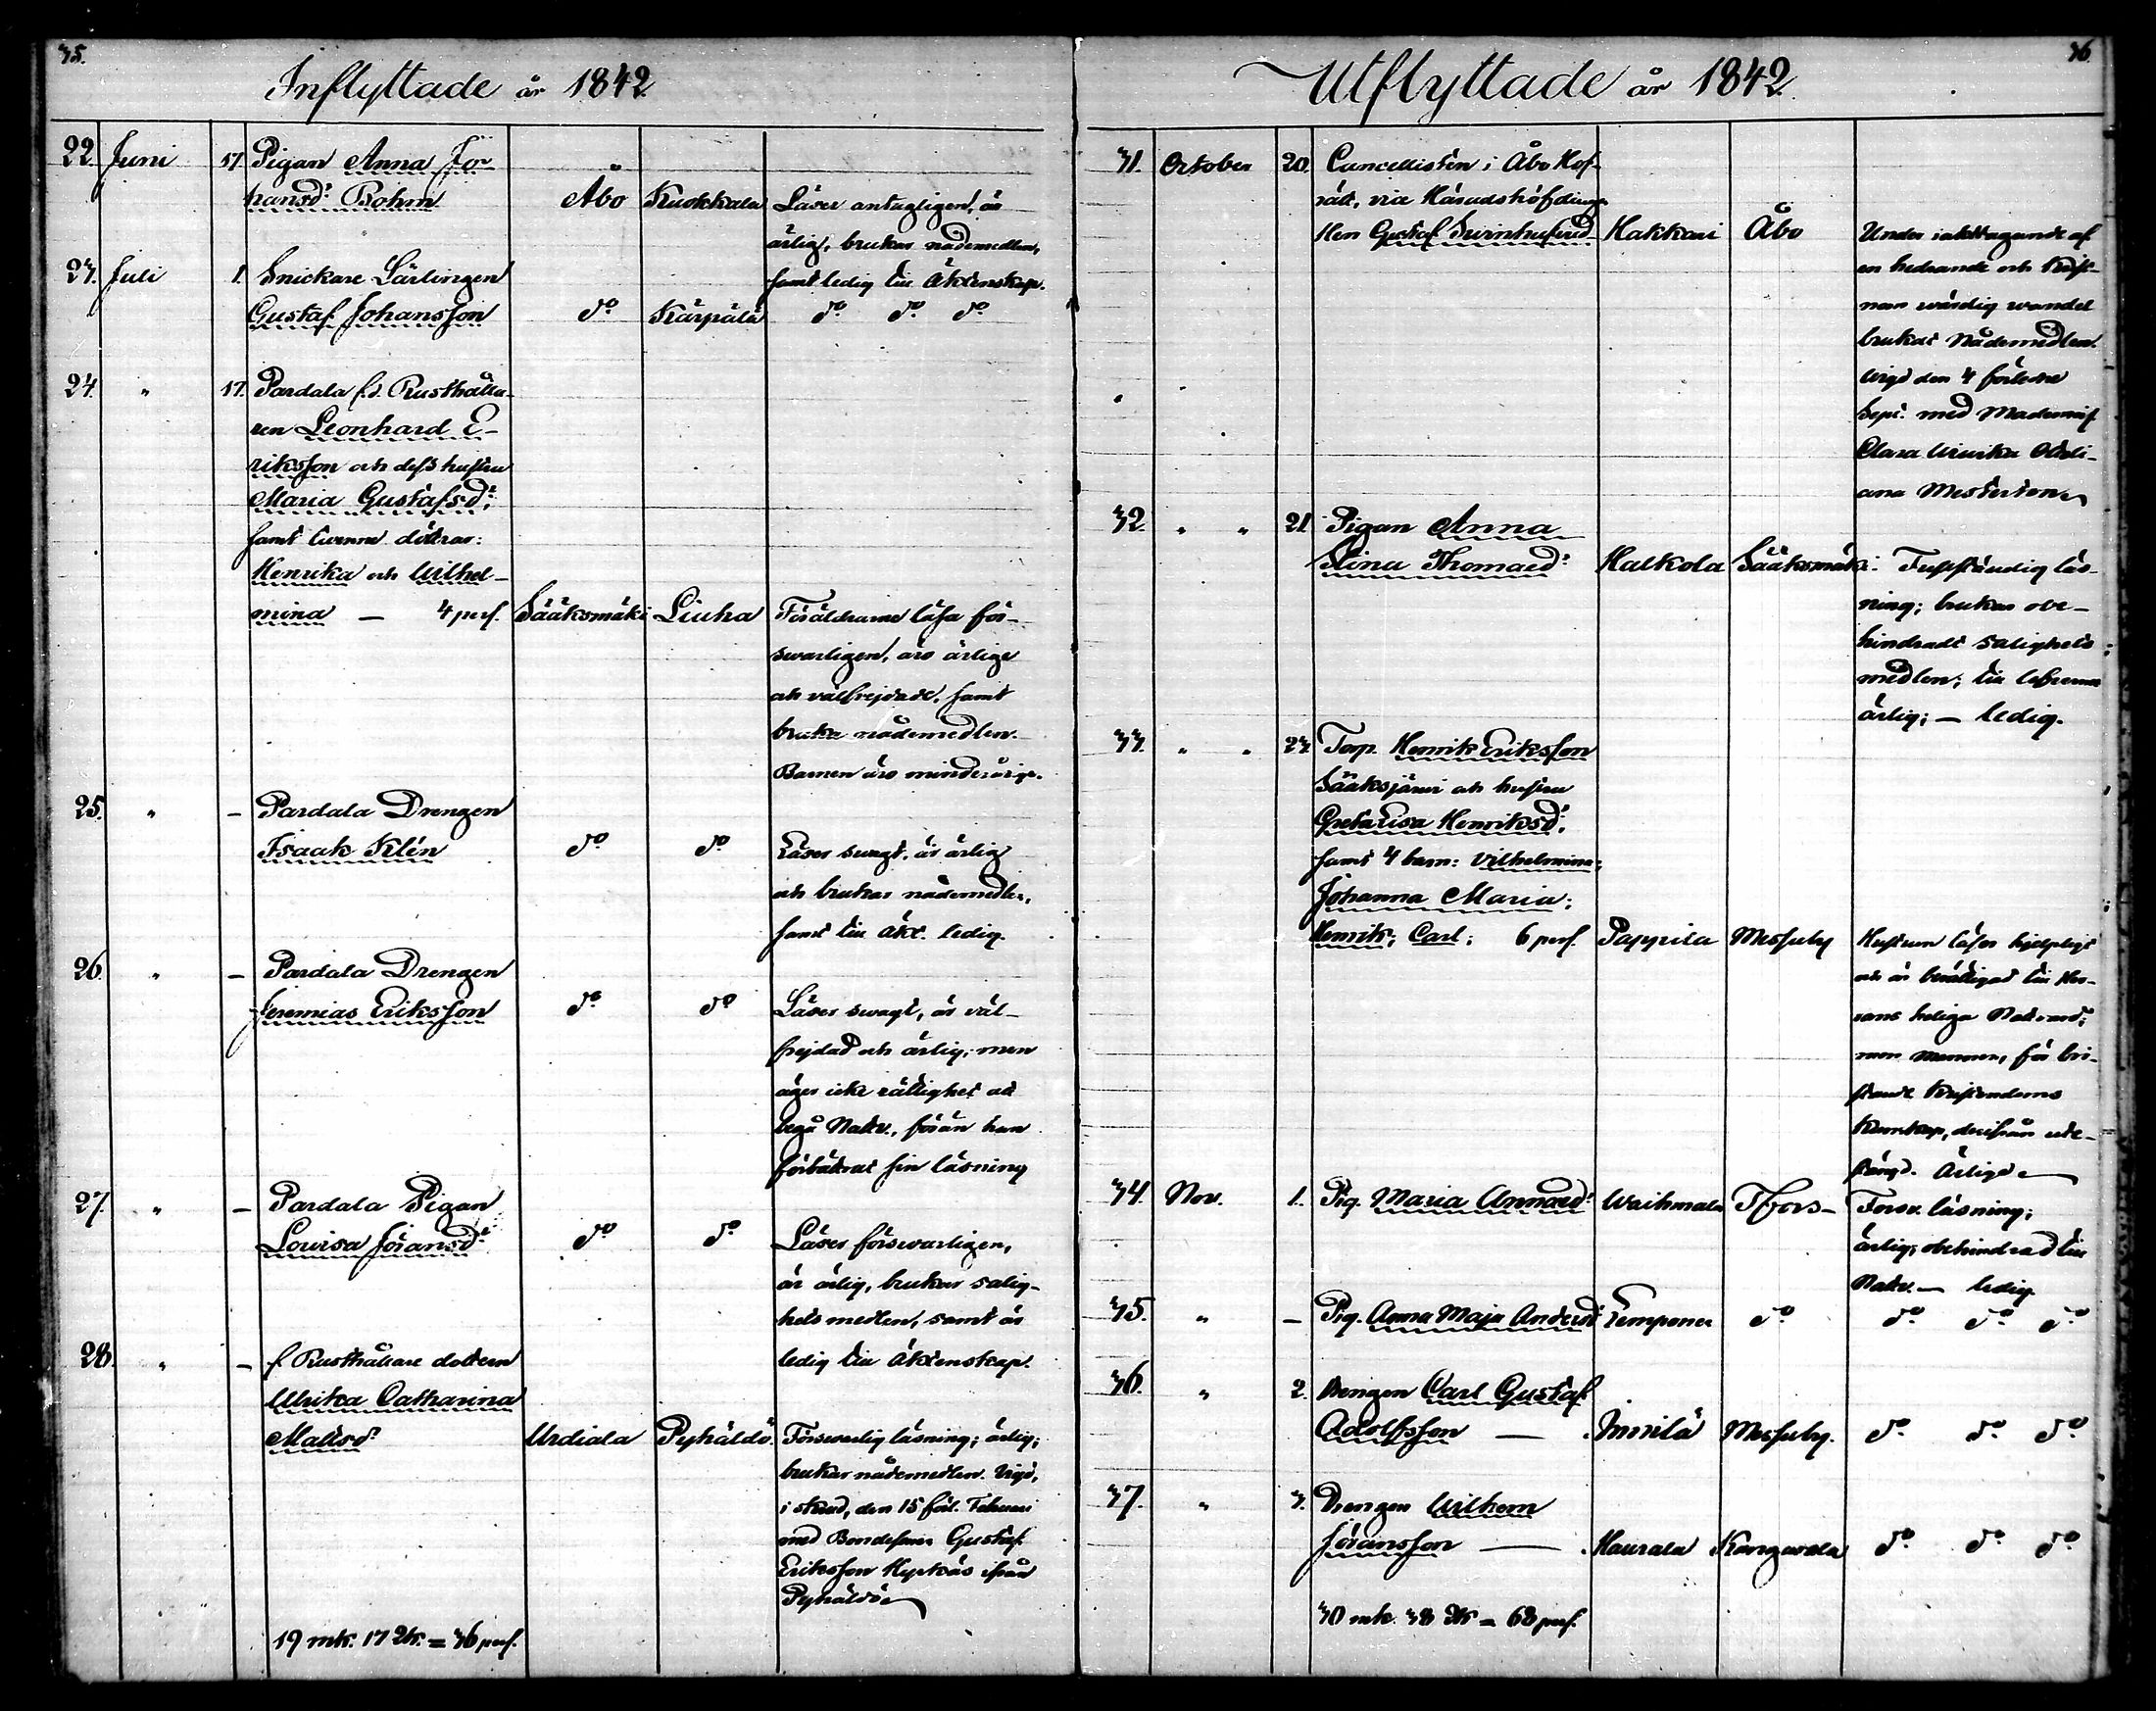 35.
Inflyttade år 1842.
22. Juni 17. Pigan Anna Jo-
hansd:r Bohm Åbo Kuokkala Läser antagligen, är
ärlig, brukar nådemedlen,
samt ledig till Äktenskap.
23. Juli 1. Snickare Lärlingen
Gustaf Johansson d:o Kärpälä d:o d:o d:o
24. " 17. Pardala f.d. Rusthålla-
ren Leonhard E-
riksson och dess hustru
Maria Gustafsd:r
samt tvenne döttrar:
Henrika och Wilhel-
mina — 4 pers. Sääksmäki Liuha Föräldrarne läsa för-
swarligen, äro ärlige
och välfrejdade, samt
bruka nådemedlen.
Barnen äro minderårige.
25. " — Pardala Drengen
Isaak Klén d:o d:o Läser swagt, är ärlig
och brukar nådemedlen,
samt till äkt. ledig.
26. " — Pardala Drengen
Jeremias Eriksson d:o d:o Läser swagt, är väl-
frejdad och ärlig; men
äger icke rättighet att
begå Nattv., förän han
förbättrat sin läsning
27. " — Pardala Pigan
Lovisa Göransd:r d:o d:o Läser förswarligen,
är ärlig, brukar salig-
hets medlen, samt är
ledig till äktenskap.
28. " — f Rusthållare dottern
Ulrika Catharina
Mattsd:r Urdiala Pyhäldö. Förswarlig läsning; ärlig;
brukar nådemedlen. Vigd,
i den 15 förl. Februari
med Bondesonen Gustaf
Eriksson ifrån
Pyhäldö
19 mk. 17 Qk. = 36 pers.
36
Utflyttade år 1842.
31. October 20. Cancellisten i Åbo Hof-
rätt, vice Häradshöfdingen
Herr Gustaf Svinhufvud Hakkari Åbo Under iakttagande af
en hedrande och Krist-
nan wärdig wandel
brukat Nådemedlen.
Wigd den 4 förledne
Sept. med Mademois.
Clara Ulrika
ana Mesterton
32. " " 21. Pigan Anna
Stina Thomasd:r Halkola Sääksmäki. Fullständig läs-
ning; brukar obe-
hindradt salighets
medlen; till lefvernet
ärlig; — ledig.
33. " " 23. Torp. Henrik Eriksson
Sääksjärvi och hustru
Greta Lisa Henriksd:r,
samt 4 barn: Vilhelmina;
Johanna Maria;
Henrik; Carl; 6 pers. Pappila Messuby Hustrun läser hjelpligt
och är berättigad till Her-
rans heliga Nattvard;
men mannen, för bri-
stande Kristendoms
Kunskap, derifrån ute-
stängd. Ärlige
34. Nov. 1. Pig. Maria Annasd:r Waihmala Tfors — Forsv. läsning;
ärlig; obehindrad till
Nattv. — ledig
35. " — Pig. Anna Maja Andersd:r Lempoinen d:o d:o d:o d:o
36. " 2. Drengen Carl Gustaf
Adolfsson — Innilä Messuby. d:o d:o d:o
37. " 3. Drengen Wilhem
Göransson — Haurala Kangasala d:o d:o d:o
30 mk. 38 Qk = 68 pers.